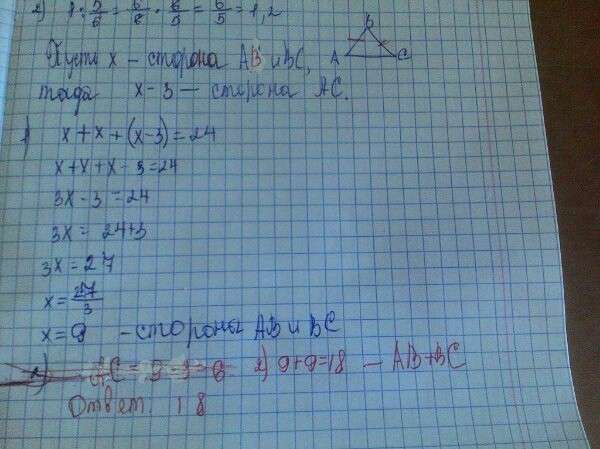 2) 1 : 5/6 = 6/6 · 6/5 = 6/5 = 1,2
B
A C
Пусть x - сторона AB и BC,
тогда x-3 — сторона AC.
1) x + x + (x-3) = 24
x + x + x - 3 = 24
3x - 3 = 24
3x = 24+3
3x = 27
x = 27/3
x = 9 - стороны AB и BC
2) AC = 9-3=6 2) 9+9=18 — AB+BC
Ответ. 18